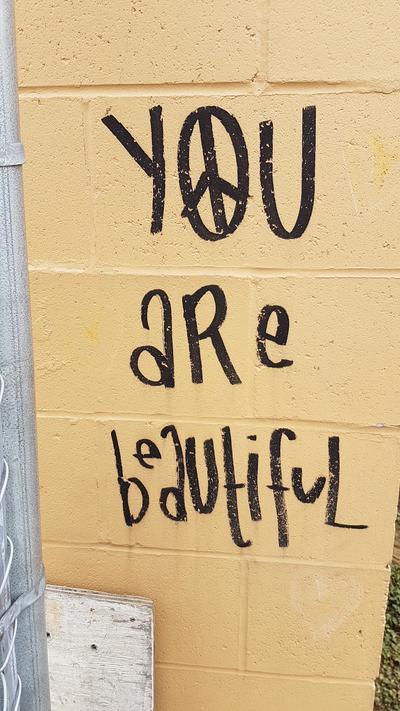 YOU
aRe
beautifuL